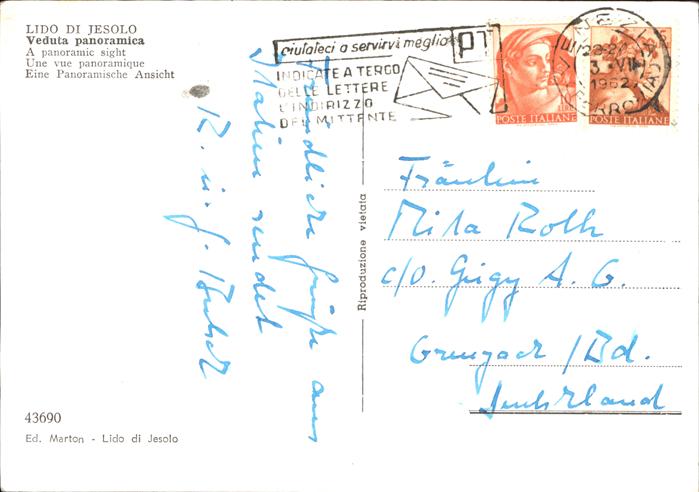 LIDO DI JESOLO
Veduta panoramica
A panoramic sight
Une vue panoramique
Eine Panoramische Ansicht
aiutateci a servirvi meglio
PT
INDICATE A TERGO
DELLE LETTERE
L'INDIRIZZO
DEL MITTENTE
POSTE ITALIANE
POSTE ITALIANE
VENEZIA
3 - VII
1962
FERROVIA
Freundliche Grüße aus
Italien sendet
R. u. J.
Riproduzione vietata
Fräulein
Rita Roth
c/o. Geigy A. G.
Grenzach / Bd.
Deutschland
43690
Ed. Marton - Lido di Jesolo